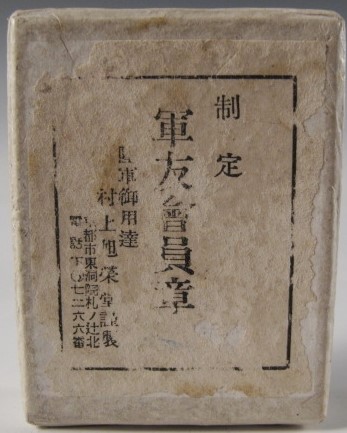 制定
軍友會員章
陸軍御用達
村上旭榮堂謹製
京都市東洞院札ノ辻北
電話下〇七二六六番